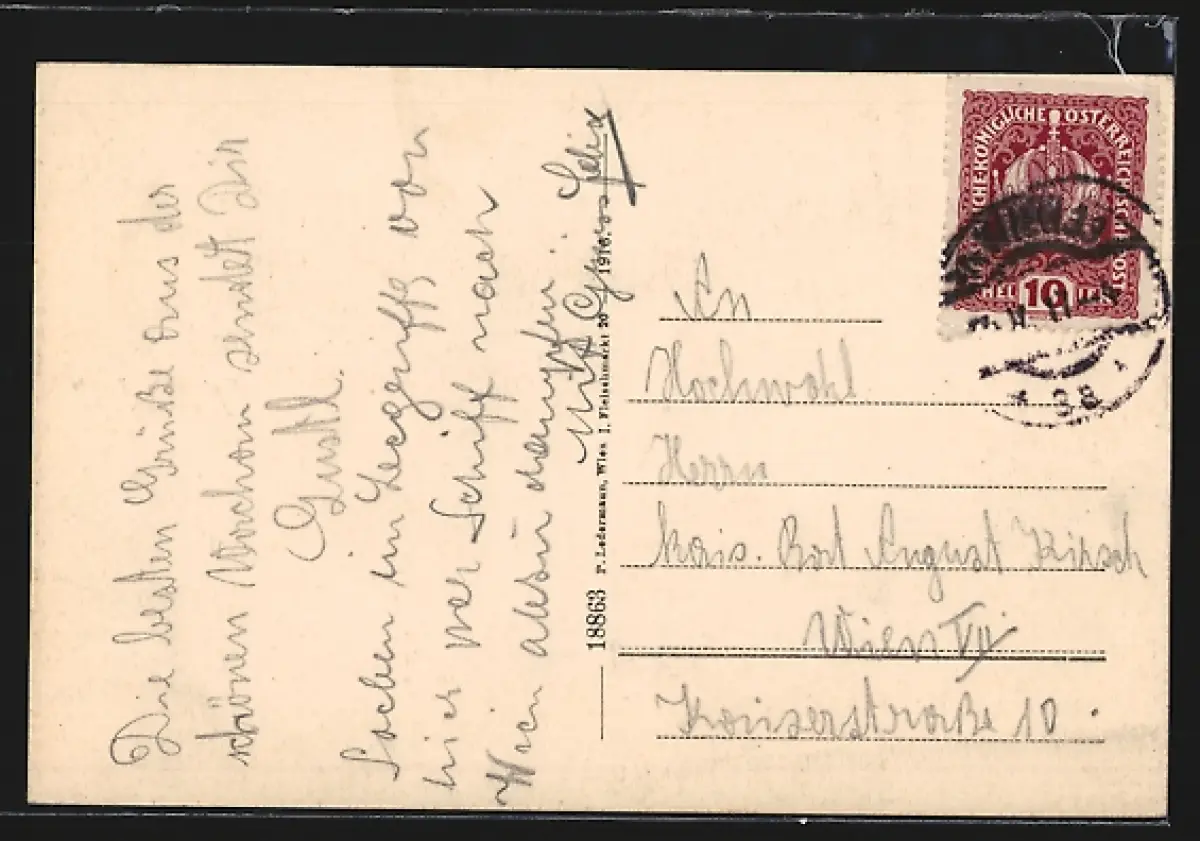 Die besten Grüße aus der
schönen Wachau sendet Dir
Gustl.
Soeben im Begriffe von
hier per Schiff nach
Wien abzudampfen.
Mit Gruss Felix
18863 P. Ledermann, Wien I. Fleischmarkt 20 1916.
KÖNIGLICHE ÖSTERREICHISCHE POST
10
An
Hochwohl
Herrn
kais. Rat August Kirsch
Wien VII
Kaiserstraße 10.